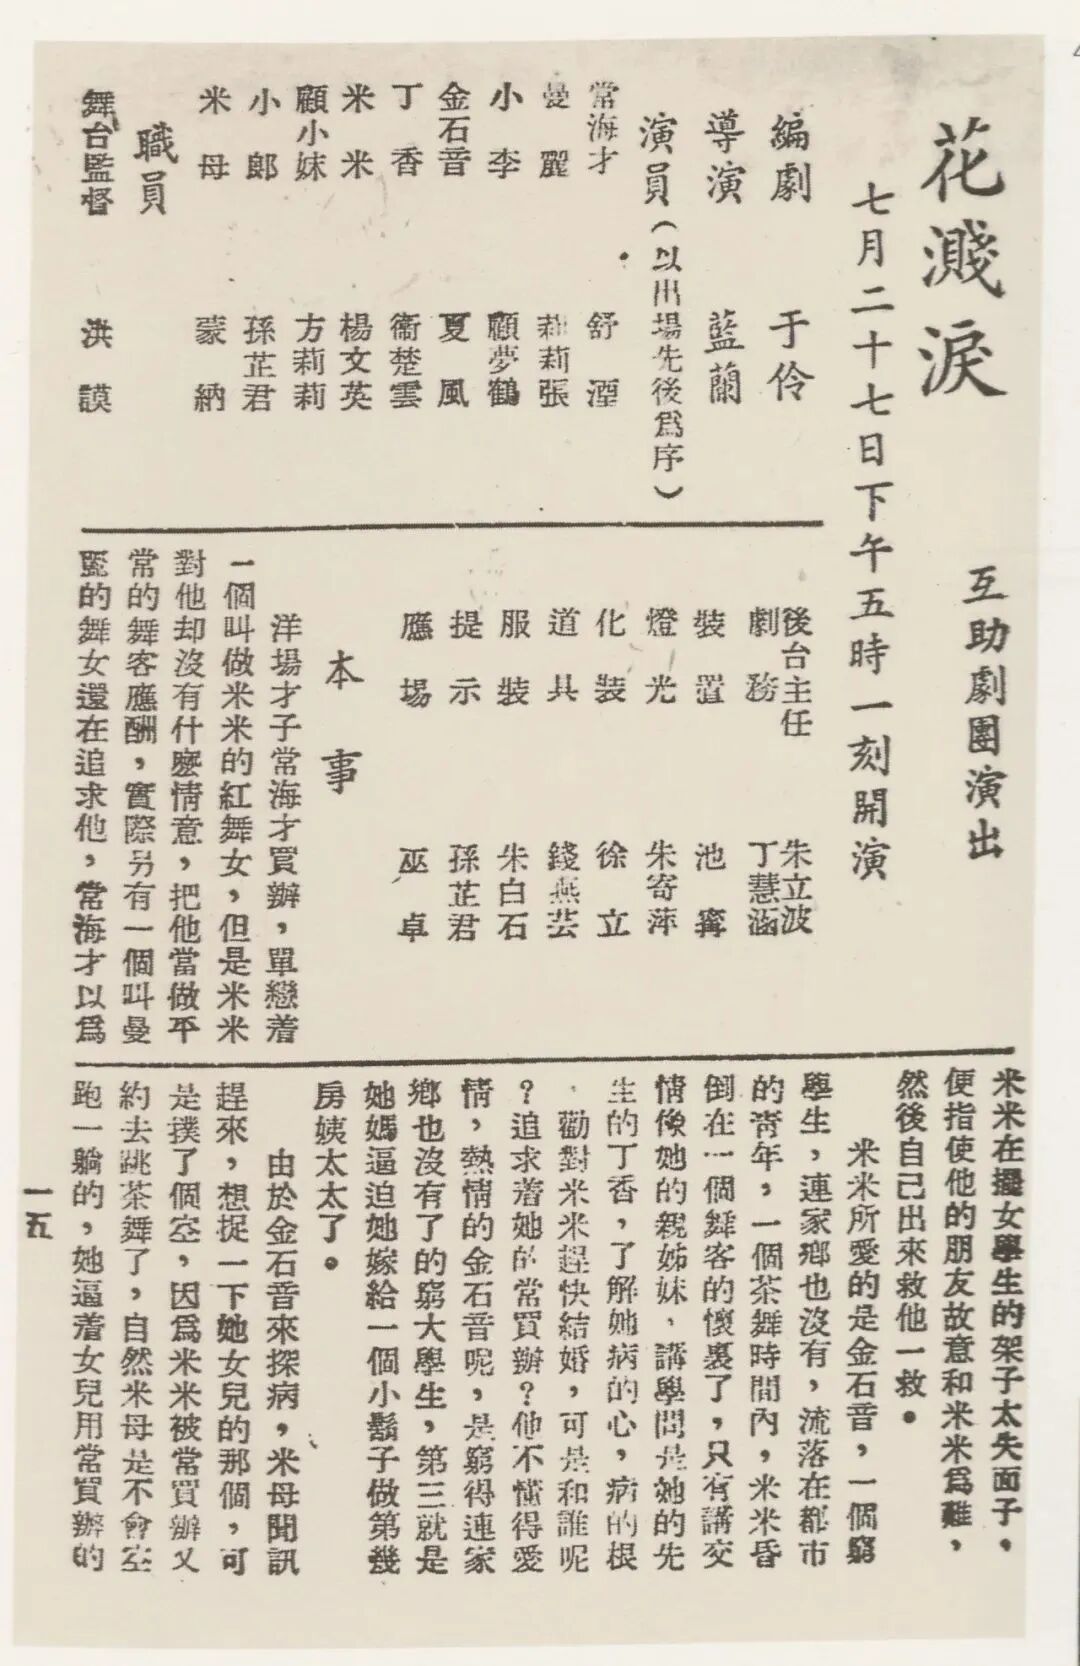 花濺淚
互助劇團演出
七月二十七日下午五時一刻開演
編劇 于伶
導演 藍蘭
演員(以出場先後爲序)
常海才 舒湮
曼麗 莉莉張
小李 顧夢鶴
金石音 夏風
丁香 衞楚雲
米米 楊文英
顧小妹 方莉莉
小郎 孫芷君
米母 蒙納
職員
舞台監督 洪謨
後台主任 朱立波
劇務 丁慧涵
裝置 池寗
燈光 朱寄萍
化裝 徐立
道具 錢燕芸
服裝 朱白石
提示 孫芷君
應場 巫卓
本事
洋場才子常海才買辦,單戀着
一個叫做米米的紅舞女,但是米米
對他却沒有什麽情意,把他當做平
常的舞客應酬,實際另有一個叫曼
麗的舞女還在追求他,常海才以爲
米米在擺女學生的架子太失面子,
便指使他的朋友故意和米米爲難,
然後自己出來救他一救。
米米所愛的是金石音,一個窮
學生,連家鄉也沒有,流落在都市
的靑年,一個茶舞時間內,米米昏
倒在一個舞客的懷裏了,只有講交
情像她的親姊妹、講學問是她的先
生的丁香,了解她病的心,病的根
,勸對米米趕快結婚,可是和誰呢
?追求着她的常買辦?他不懂得愛
情,熱情的金石音呢,是窮得連家
鄉也沒有了的窮大學生,第三就是
她媽逼迫她嫁給一個小鬍子做第幾
房姨太太了。
由於金石音來探病,米母聞訊
趕來,想捉一下她女兒的那個,可
是撲了個空,因爲米米被常買辦又
約去跳茶舞了,自然米母是不會空
跑一躺的,她逼着女兒用常買辦的
一五